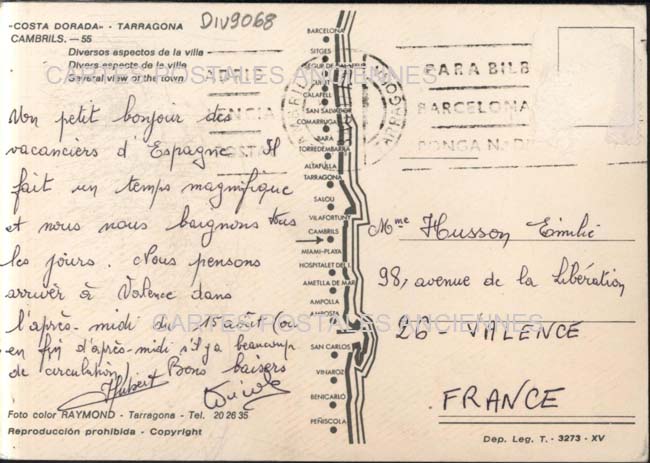 DIV9068
"COSTA DORADA" - TARRAGONA
CAMBRILS. - 55
Diversos aspectos de la villa
Divers aspects de la ville
General view of the town
CARTES POSTALES ANCIENNES
Un petit bonjour des
vacanciers d'Espagne. Il
fait un temps magnifique
et nous nous baignons tous
les jours. Nous pensons
arriver à Valence dans
l'après-midi du 15 août (ou
en fin d'après-midi s'il y a beaucoup
de circulation. Bons baisers
Hubert
Foto color RAYMOND - Tarragona - Tel. 20 26 35
Reproducción prohibida - Copyright
BARCELONA
SITGES
CALAFELL
SAN SALVADOR
COMARRUGA
BARA
TORREDEMBARRA
ALTAFULLA
TARRAGONA
SALOU
VILAFORTUNY
CAMBRILS
MIAMI-PLAYA
HOSPITALET DEL I.
AMETLLA DE MAR
AMPOLLA
AMPOSTA
SAN CARLOS
VINAROZ
BENICARLO
PEÑISCOLA
PARA BILB
BARCELONA
PONGA N.
CARTES POSTALES ANCIENNES
Mme Husson Emilie
98, avenue de la Libération
26 VALENCE
FRANCE
Dep. Leg. T. - 3273 - XV